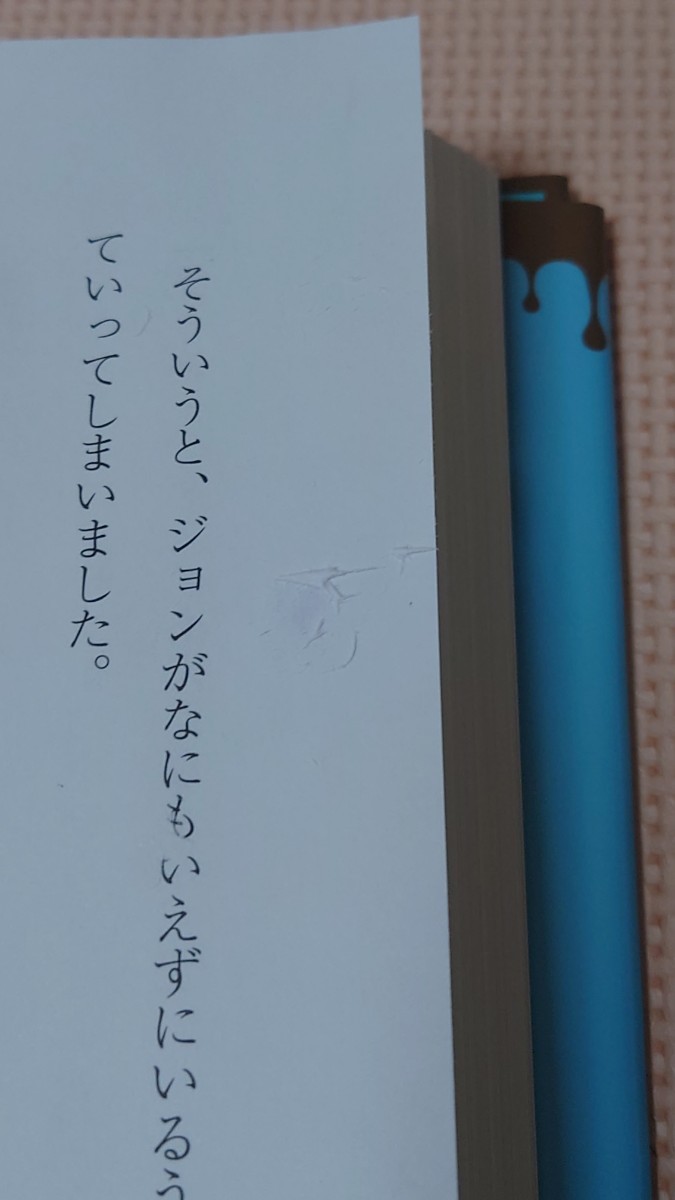 そういうと、ジョンがなにもいえずにいるう
ていってしまいました。